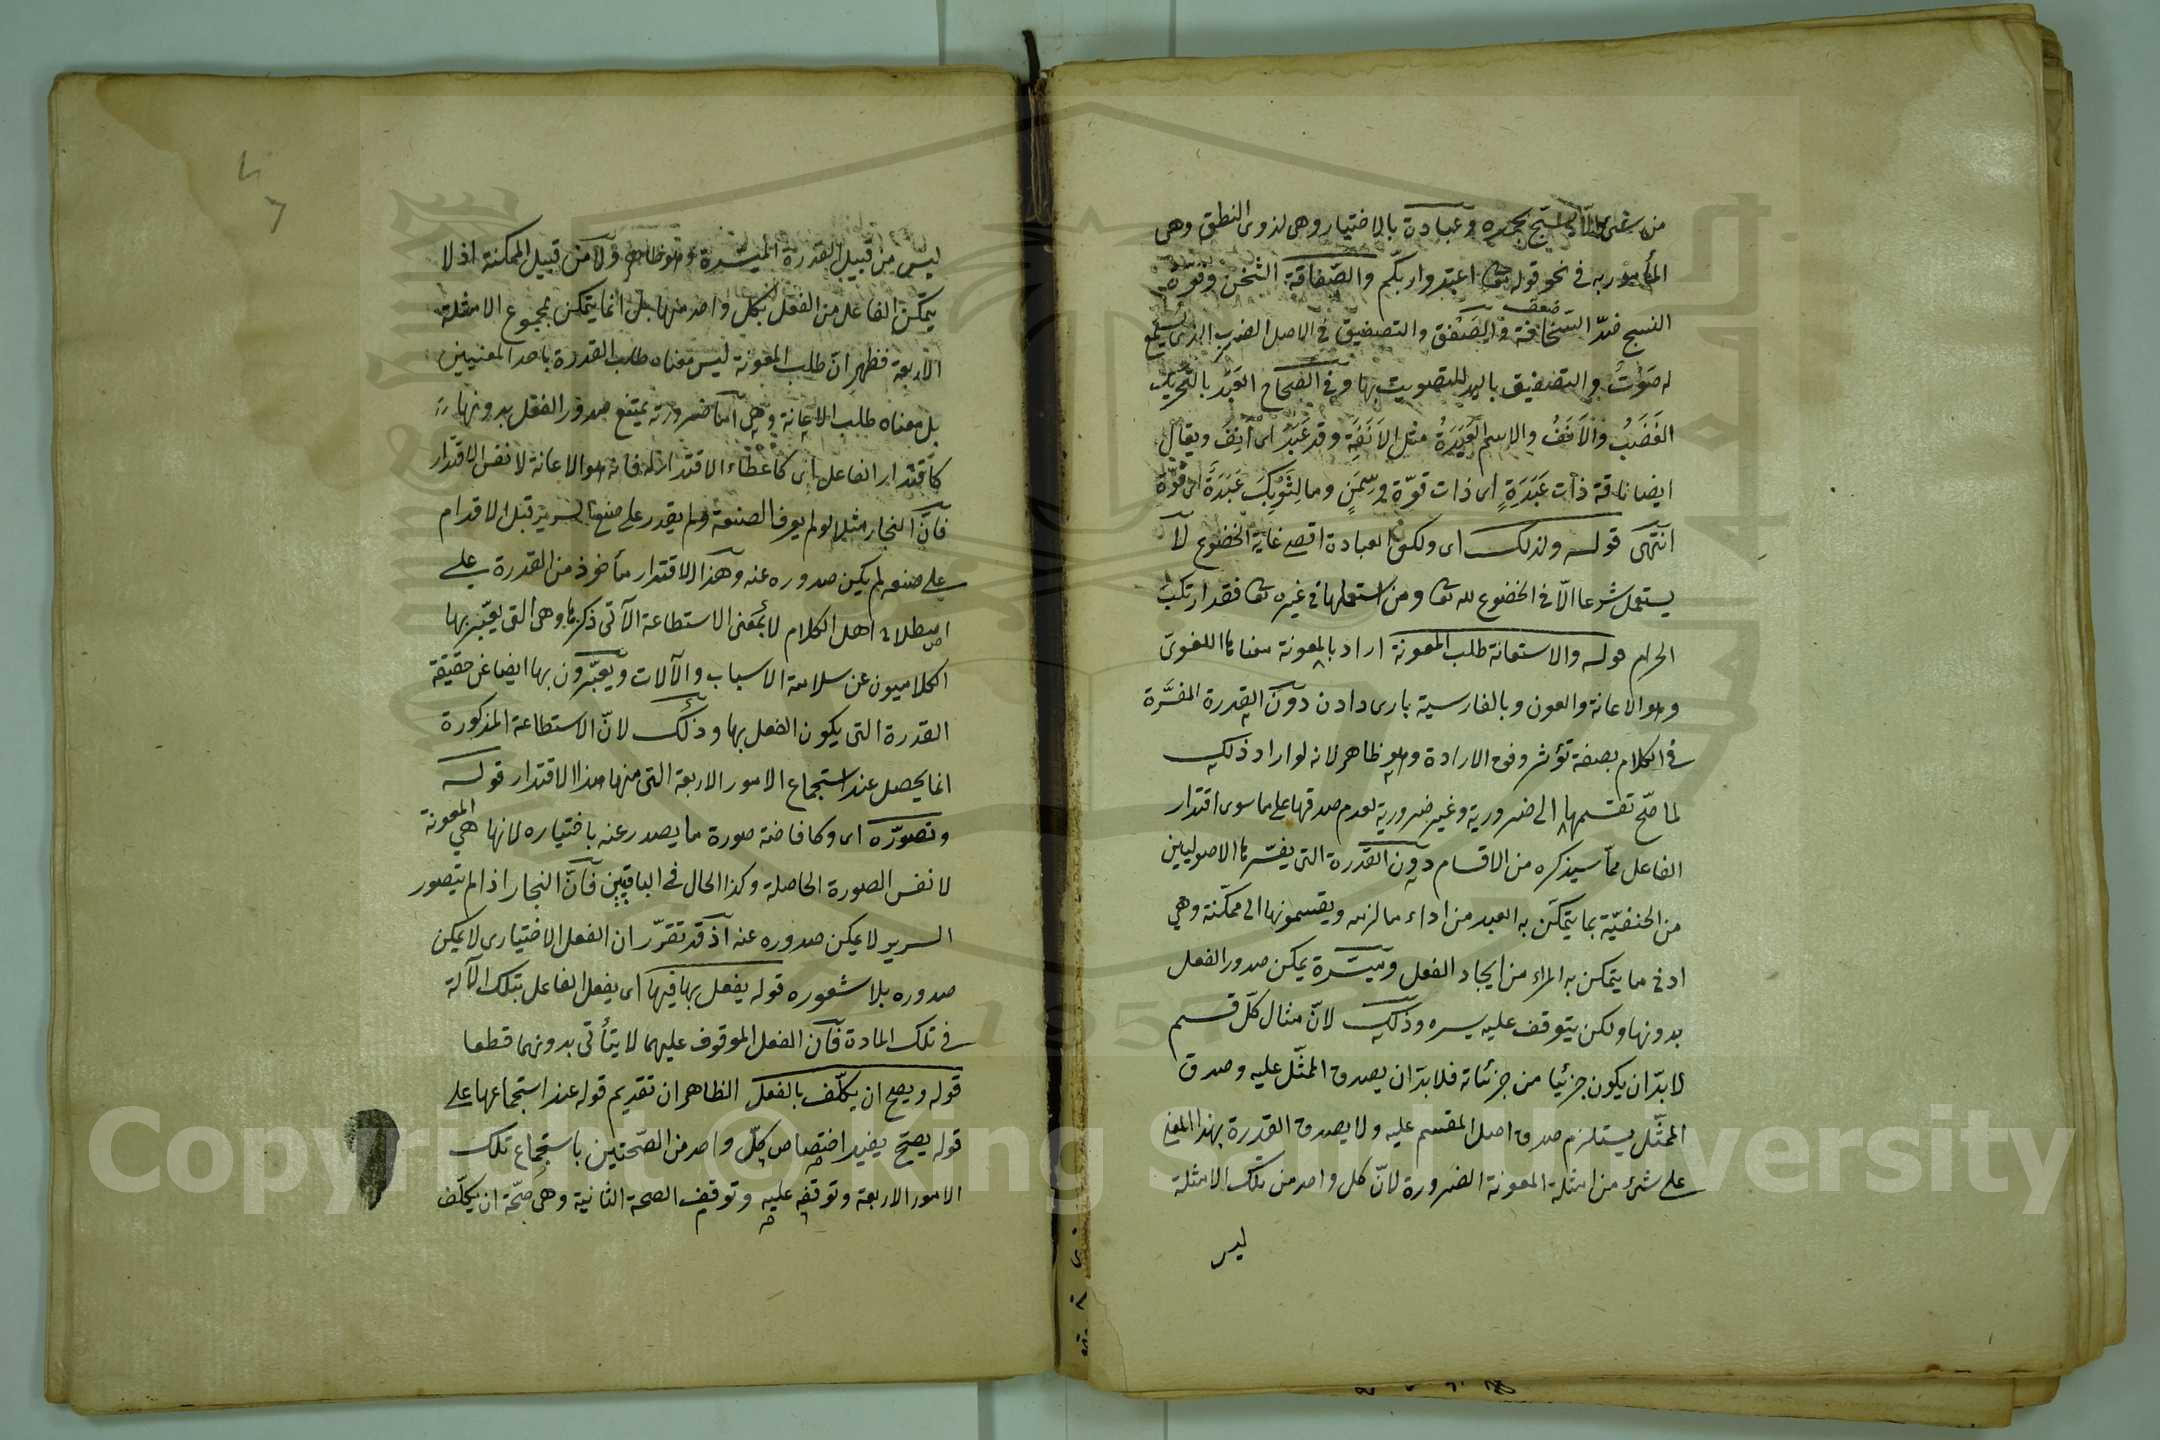 من شئ الا يسبح بحمده وعبادة بالاختيار وهى لذوى النطق وهى
المأمور به فى نحو قوله تعا اعبدوا ربكم والصفاقة الثخن وقوة
النسج ضدّ السخافة والصفق والتصفيق فى الاصل الضرب الذى يسمع
ضعف
له صَوْتٌ والتصفيق باليد للتصويت بها وفى الصحاح العَبَد بالتحريك
الغَضَبُ والاَنَفُ والاسم العَبَدَةُ مثل الاَنَفَةِ وقد عَبَدَ اى اَنِفَ ويقال
ايضا ناقة ذات عَبَدَةٍ اى ذات قوّة وسِمَنٍ وما لِثَوْبِكَ عَبَدَةٌ اى قوّة
انتهى قوله ولذلك اى ولكون العبادة اقصى غاية الخضوع لا
يستعمل شرعا الّا فى الخضوع لله تعا ومن استعملها فى غيره تعا فقد ارتكب
الحرام قوله والاستعانة طلب المعونة اراد بالمعونة معناها اللغوىّ
وهو الاعانة والعون وبالفارسية يارى دادن دون القدرة المفسَّرة
فى الكلام بصفة تؤثر وفق الارادة وهو ظاهر لانه لو اراد ذلك
لما صحّ تقسيمها الى ضرورية وغير ضرورية لعدم صدقها على ما سوى اقتدار
الفاعل مما سيذكره من الاقسام دون القدرة التى يفسّرها الاصوليين
من الحنفيّة بما يتمكّن به العبد من اداء ما لزمه ويقسمونها الى ممكّنة وهي
ادنى ما يتمكن به المراء من ايجاد الفعل وميسّرة يمكن صدور الفعل
بدونها ولكن يتوقف عليه يسره وذلك لانّ مثال كلّ قسم
لا بدّ ان يكون جزئيا من جزئياته فلا بدّ ان يصدق الممثّل عليه وصدق
الممثّل يستلزم صدق اصل المقسم عليه ولا يصدق القدرة بهذا المعنى
على شئ من امثلة المعونة الضرورة لانّ كل واحد من تلك الامثلة
ليس
ليس من قبيل القدرة الميسّرة وهو ظاهر ولا من قبيل الممكنة اذ لا
يتمكّن الفاعل من الفعل بكل واحد منها بل انما يتمكن بمجموع الامثلة
الاربعة فظهر انّ طلب المعونة ليس معناه طلب القدرة باحد المعنيين
بل معناه طلب الاعانة وهى اما ضرورة يمتنع صدور الفعل بدونها
كاقتدار الفاعل اى كاعطاء الاقتدار له فانه هو الاعانة لا نفس الاقتدار
فانّ النجار مثلا لو لم يعرف الصنعة ولم يقدر على صنع السرير قبل الاقدام
على صنعه لم يكن صدوره عنه وهذا الاقتدار مأخوذ من القدرة على
اصطلاح اهل الكلام لا بمعنى الاستطاعة الآتى ذكرها وهى التى يعبّر بها
الكلاميون عن سلامة الاسباب والآلات ويعبّرون بها ايضا عن حقيقة
القدرة التى يكون الفعل بها وذلك لانّ الاستطاعة المذكورة
انما يحصل عند استجماع الامور الاربعة التى منها هذا الاقتدار قوله
وتصوّره اى وكافاضة صورة ما يصدر عنه باختياره لانها هي المعونة
لا نفس الصورة الحاصلة وكذا الحال فى الباقيين فانّ النجار اذا لم يتصور
السرير لا يمكن صدوره عنه اذ قد تقرّر ان الفعل الاختيارى لا يمكن
صدوره بلا شعوره قوله يفعل بها فيها اى يفعل الفاعل بتلك الآلة
فى تلك المادة فانّ الفعل الموقوف عليهما لا يتأتى بدونهما قطعا
قوله ويصح ان يكلّف بالفعل الظاهر ان تقديم قوله عند استجماعها على
قوله يصحّ يفيد اختصاص كلّ واحد من الصّحتين باستجماع تلك
الامور الاربعة وتوقفه عليه وتوقيف الصحة الثانية وهى صحّة ان يكلّف